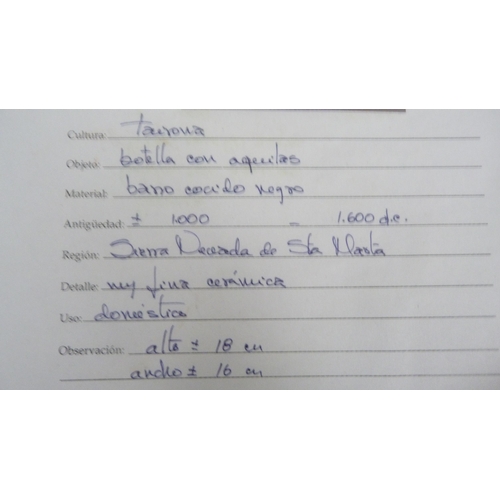 Cultura: taurona
Objeto: botella con aguilas
Material: barro cocido negro
Antigüedad: ± 1.000 – 1.600 d.c.
Región: Sierra Nevada de Sta Marta
Detalle: muy fina cerámica
Uso: doméstico
Observación: alto ± 18 cm
ancho ± 16 cm